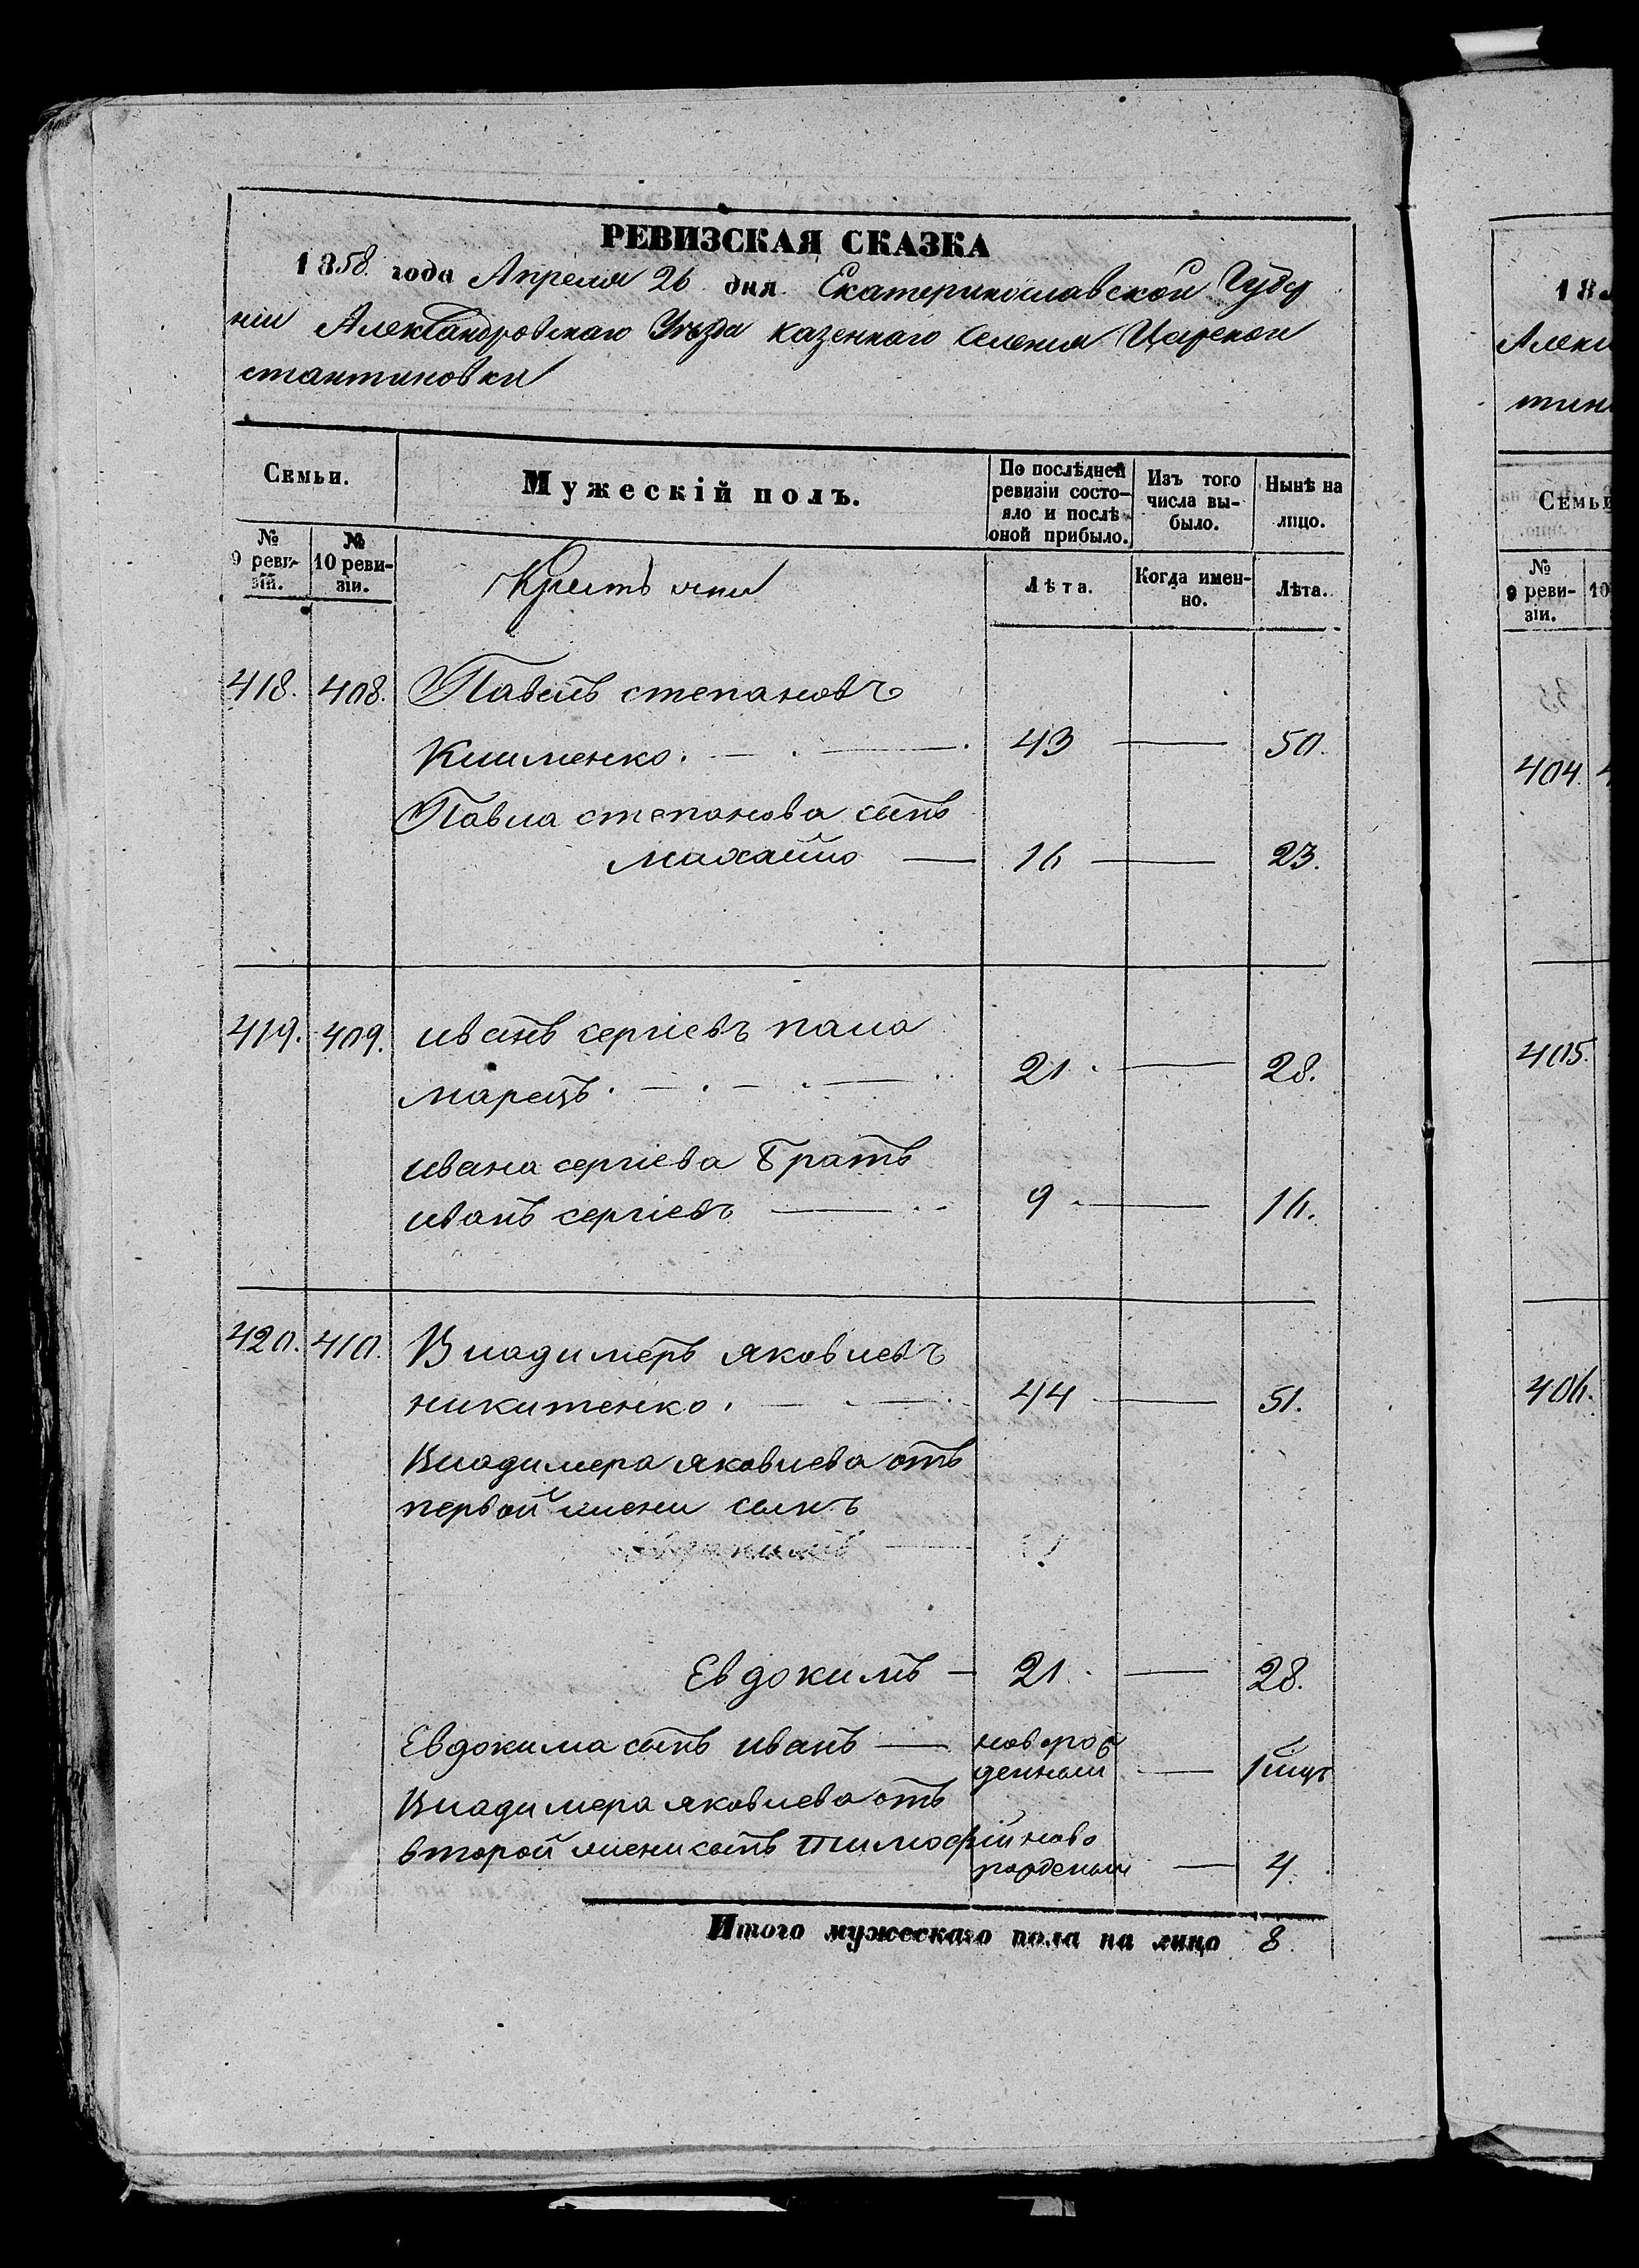 РЕВИЗСКАЯ СКАЗКА
1858 года Апреля 26 дня Екатеринославской Губер
ніи Александровскаго Уѣзда казеннаго селенія Царекон
стантиновки
Семьи.
Мужескій полъ.
По послѣдней ревизіи состо-яло и послѣ оной прибыло.
Изъ того числа вы-было.
Нынѣ на лицо.
№ 9 реви-зіи.
№ 10 реви-зіи.
Крестьяни
Лѣта.
Когда имен-но.
Лѣта.
418. 408. Павелъ степановъ
Клименко. 43 — 50.
Павла степанова сынъ
михайло — 16 — 23.
419. 409. иванъ сергіевъ пана
марецъ. 21 — 28.
ивана сергіева братъ
иванъ сергіевъ — 9 — 16.
420. 410. Владимеръ яковлевъ
никитенко. 44 — 51.
Владимера яковлева отъ
первой жены сынъ
Евдокимъ — 21 — 28.
Евдокима сынъ иванъ — новорож
денный — 1
Владимера яковлева отъ
второй жены сынъ тимофій ново
рожденый — 4.
Итого мужескаго пола на лицо 8.
18
Алекс
тин
Семьи
№ 9 реви-зіи.
10
404.
405.
406.